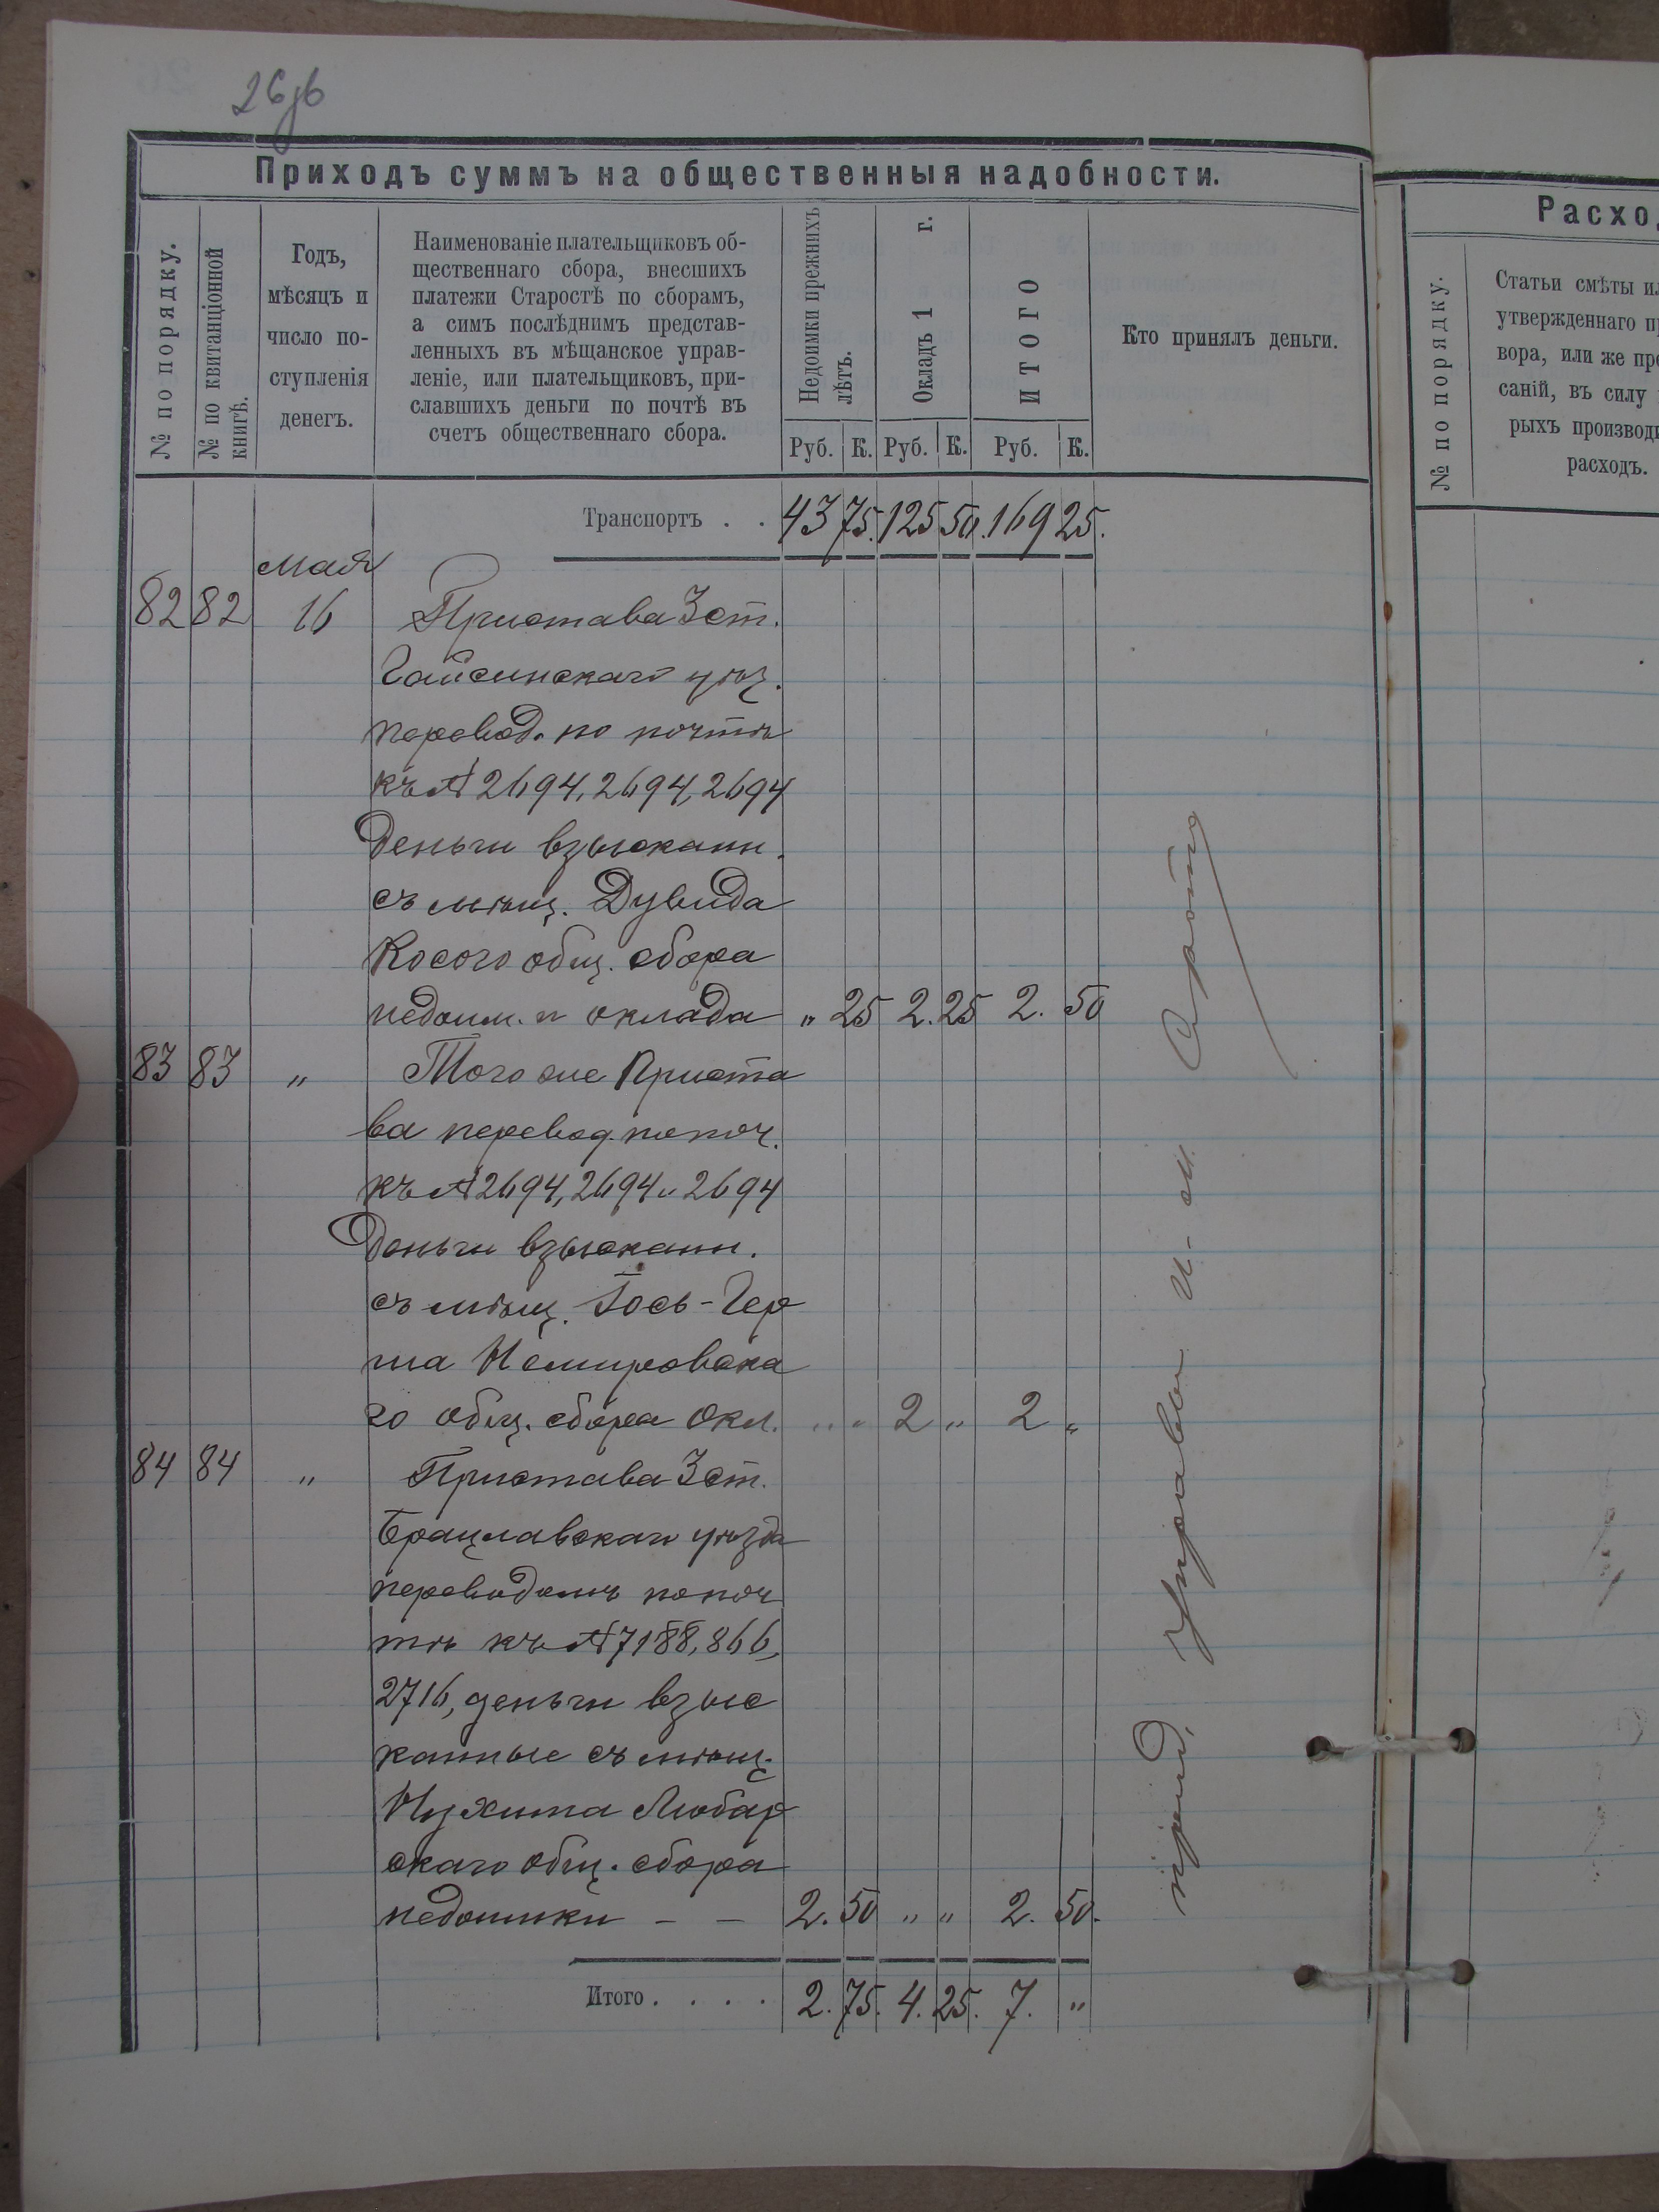 26об
Приходъ суммъ на общественныя надобности.
№ по порядку.
№ по квитанціонной книгѣ.
Годъ,
мѣсяцъ и
число по-
ступленія
денегъ.
Наименованіе плательщиковъ об-
щественнаго сбора, внесшихъ
платежи Старостѣ по сборамъ,
а симъ послѣднимъ представ-
ленныхъ въ мѣщанское управ-
леніе, или плательщиковъ, при-
славшихъ деньги по почтѣ въ
счетъ общественнаго сбора.
Недоимки прежнихъ лѣтъ.
Окладъ 1 г.
ИТОГО
Кто принялъ деньги.
Руб. К. Руб. К. Руб. К.
Транспортъ . . 43 75. 125 50. 169 25.
Мая
82 82 16 Пристава 3 ст.
Гайсинскаго уѣз.
перевод. по почтѣ
къ № 2694, 2694, 2694
деньги взыскан.
съ мѣщ. Дувида
Косого общ. сбора
недоим. и оклада „ 25 2. 25 2. 50
83 83 „ Того же Приста
ва перевод. по поч.
къ № 2694, 2694 и 2694
деньги взыскан.
съ мѣщ. Іось-Гер
ша Немировска
го общ. сбора окл. „ „ 2 „ 2 „
84 84 „ Пристава 3 ст.
Брацлавскаго уѣзда
переводомъ по поч
тѣ къ № 7188, 866,
2716, деньги взыс
канные съ мѣщ.
Нухима Любар
скаго общ. сбора
недоимки – – 2. 50 „ „ 2. 50.
Итого . . . . 2. 75. 4. 25. 7. „
Управы
Расхо
№ по порядку.
Статьи смѣты и
утвержденнаго п
вора, или же пр
саній, въ силу
рыхъ производ
расходъ.